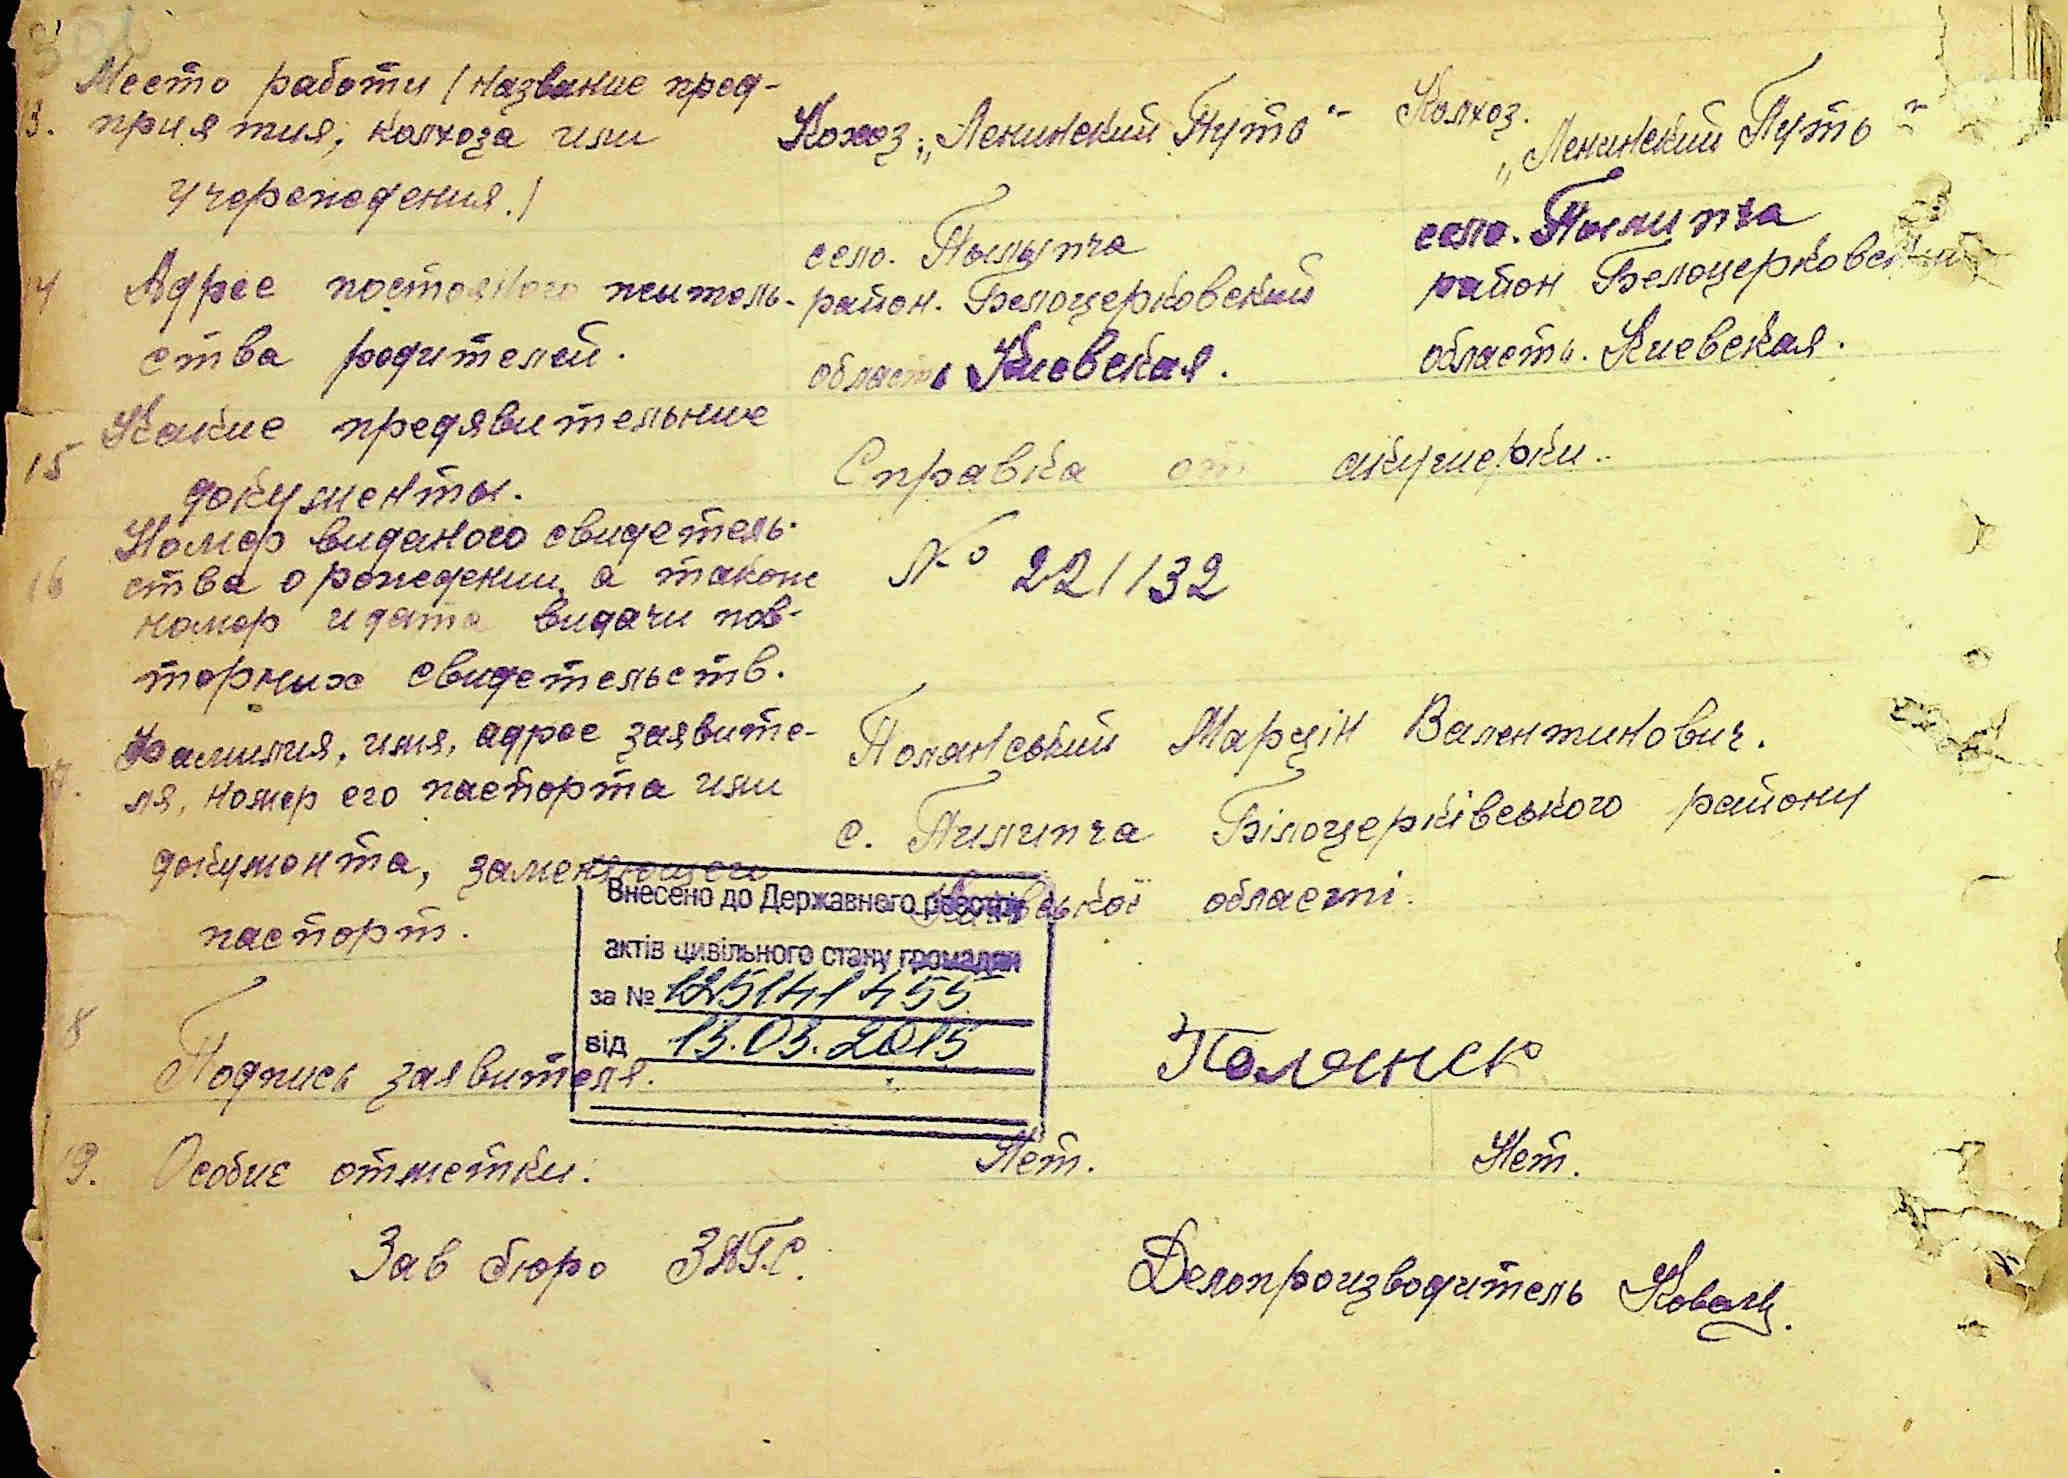 13. Место работи (название пред-
приятия, колхоза или
учереждения.)
Кохоз. „Ленинский Путь"
Колхоз.
„Ленинский Путь"
14 Адрес постояного житель-
ства родителей.
село. Пылыпча
район. Белоцерковский
область Киевская.
село. Пылипча
район Белоцерковский
область. Киевская.
15 Какие предявительние
документы.
Справка от акушерки.
16 Номер виданого свидетель-
ства о рождении, а также
номер и дата видачи пов-
торных свидетельств.
№ 221132
17. Фамилия, имя, адрес заявите-
ля, номер его паспорта или
документа, заменяющего
паспорт.
Полянський Марцін Валентинович.
с. Пилипча Білоцерківського району
Київської області.
Внесено до Державного реєстру
актів цивільного стану громадян
за №
від 13.03.2015
18 Подпись заявителя.
Полянск
19. Особие отметки.
Нет.
Нет.
Зав бюро ЗАГС.
Делопроизводитель